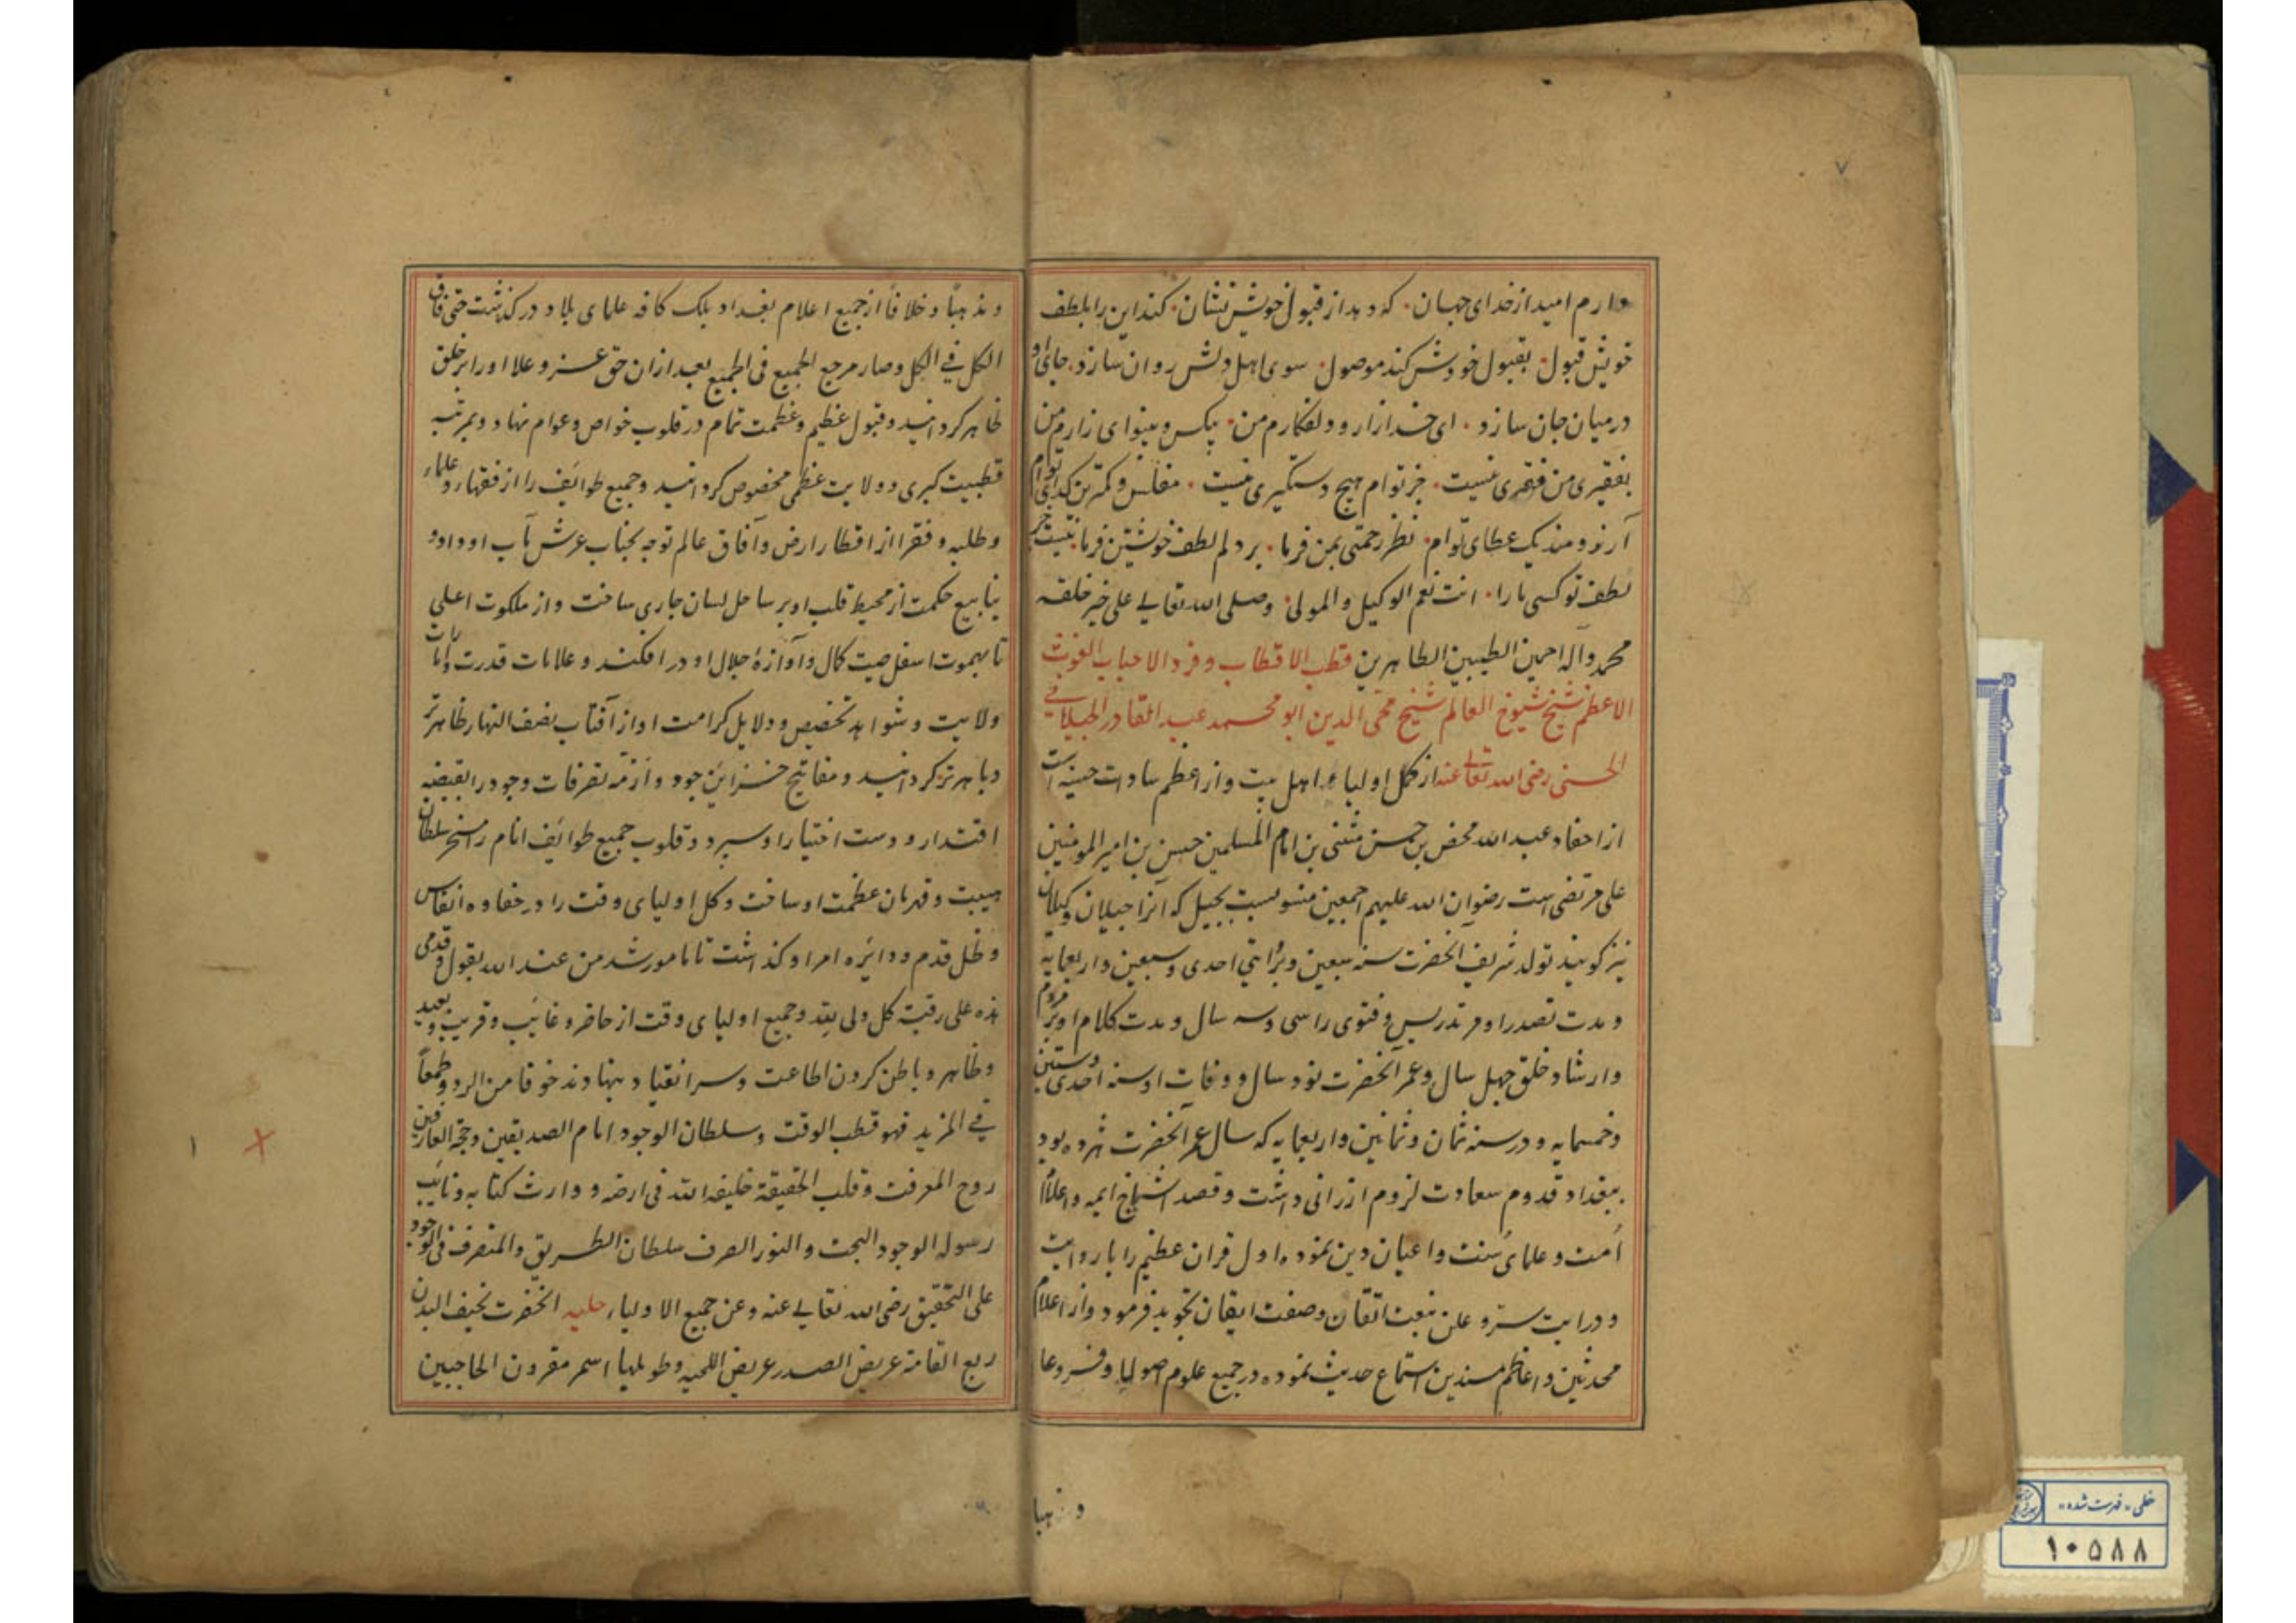 ۷
دارم امید از خدای جهان · که دهد از قبول خویش نشان · کند این را بلطف
خویش قبول · بقبول خودش کند موصول · سوی اهل دلش روان سازد · جای او
درمیان جان سازد · ای خدا زار و دلفکارم من · بیکس و بینوای زارم من
بفقیری من فقیری نیست · جز توام هیچ دستگیری نیست · مفلس و کمترین گدای توام
آرزومند یک عطای توام · نظر رحمتی بمن فرما · بر دلم لطف خویشتن فرما · نیست جز
لطف تو کسی ما را · انت نعم الوکیل والمولی · وصلی الله تعالی علی خیر خلقه
محمد وآله اجمعین الطیبین الطاهرین قطب الاقطاب وفرد الاحباب الغوث
الاعظم شیخ شیوخ العالم شیخ محی الدین ابو محمد عبد القادر الجیلانی
الحسنی رضی الله تعالی عنه از کمل اولیاء اهل بیت و از اعظم سادات حسینه است
از احفاد عبد الله محض بن حسن مثنی بن امام المسلمین حسن بن امیر المومنین
علی مرتضی است رضوان الله علیهم اجمعین منسوبست بجیل که آنرا جیلان و کیلان
نیز کویند تولد شریف آنحضرت سنه سبعین و برایتی احدی وسبعین واربعمایه
و مدت تصدر او مر تدریس و فتوی را سی و سه سال و مدت کلام او بر مردم
و ارشاد خلق چهل سال و عمر آنحضرت نود سال و وفات او سنه احدی وستین
وخمسمایه و در سنه ثمان وثمانین واربعمایه که سال عمر آنحضرت هژده بود
ببغداد قدوم سعادت لزوم ارزانی داشت و قصد اشیاخ ایمه و اعلام
امت و علمای سنت و اعیان دین نموده اول قران عظیم را با روایت
و درایت سر و علن بنعت اتقان و صفت ایقان تجوید فرمود و از اعلام
محدثین و اعاظم مسندین استماع حدیث نموده در جمیع علوم اصولیا و فروعا
ومذهبا
ومذهباً وخلافاً از جمیع اعلام بغداد بلک کافه علمای بلاد درکذشت حتی فاق
الکل فی الکل وصار مرجع الجمیع فی الجمیع بعد ازان حق عز و علا او را بر خلق
ظاهر کردانید و قبول عظیم و عظمت تمام در قلوب خواص و عوام نهاد و بمرتبه
قطبیت کبری و ولایت عظمی مخصوص کردانید و جمیع طوائف را از فقهاء و علماء
و طلبه و فقرا از اقطار ارض و آفاق عالم توجه بجناب عرش مآب او داد و
ینابیع حکمت از محیط قلب او بر ساحل لسان جاری ساخت و از ملکوت اعلی
تا بهموت اسفل صیت کمال و آوازهٔ جلال او در افکند و علامات قدرت و امارات
ولایت و شواهد تخصیص و دلایل کرامت او از آفتاب نصف النهار ظاهرتر
و باهرتر کردانید و مفاتیح خزاین جود و ازمّه تصرفات وجود را بقبضه
اقتدار و دست اختیار او سپرد و قلوب جمیع طوائف انام را مسخر سلطان
هیبت و قهرمان عظمت او ساخت و کل اولیای وقت را در خفاوه انفاس
و ظل قدم و دائره امر او کذاشت تا مامور شد من عند الله بقول قدمی
هذه علی رقبة کل ولی لله و جمیع اولیای وقت از حاضر و غائب و قریب و بعید
و ظاهر و باطن کردن اطاعت و سر انقیاد بنهادند خوفا من الرد وطمعاً
فی المزید فهو قطب الوقت وسلطان الوجود امام الصدیقین وحجة العارفین
روح المعرفت وقلب الحقیقة خلیفه الله فی ارضه و وارث کتابه ونائب
رسوله الوجود البحت والنور الصرف سلطان الطریق والمتصرف فی الوجود
علی التحقیق رضی الله تعالی عنه وعن جمیع الاولیاء حلیه آنحضرت نحیف البدن
ربع القامة عریض الصدر عریض اللحیه وطویلها اسمر مقرون الحاجبین
۱
خطی « فهرست شده »
۱۰۵۸۸